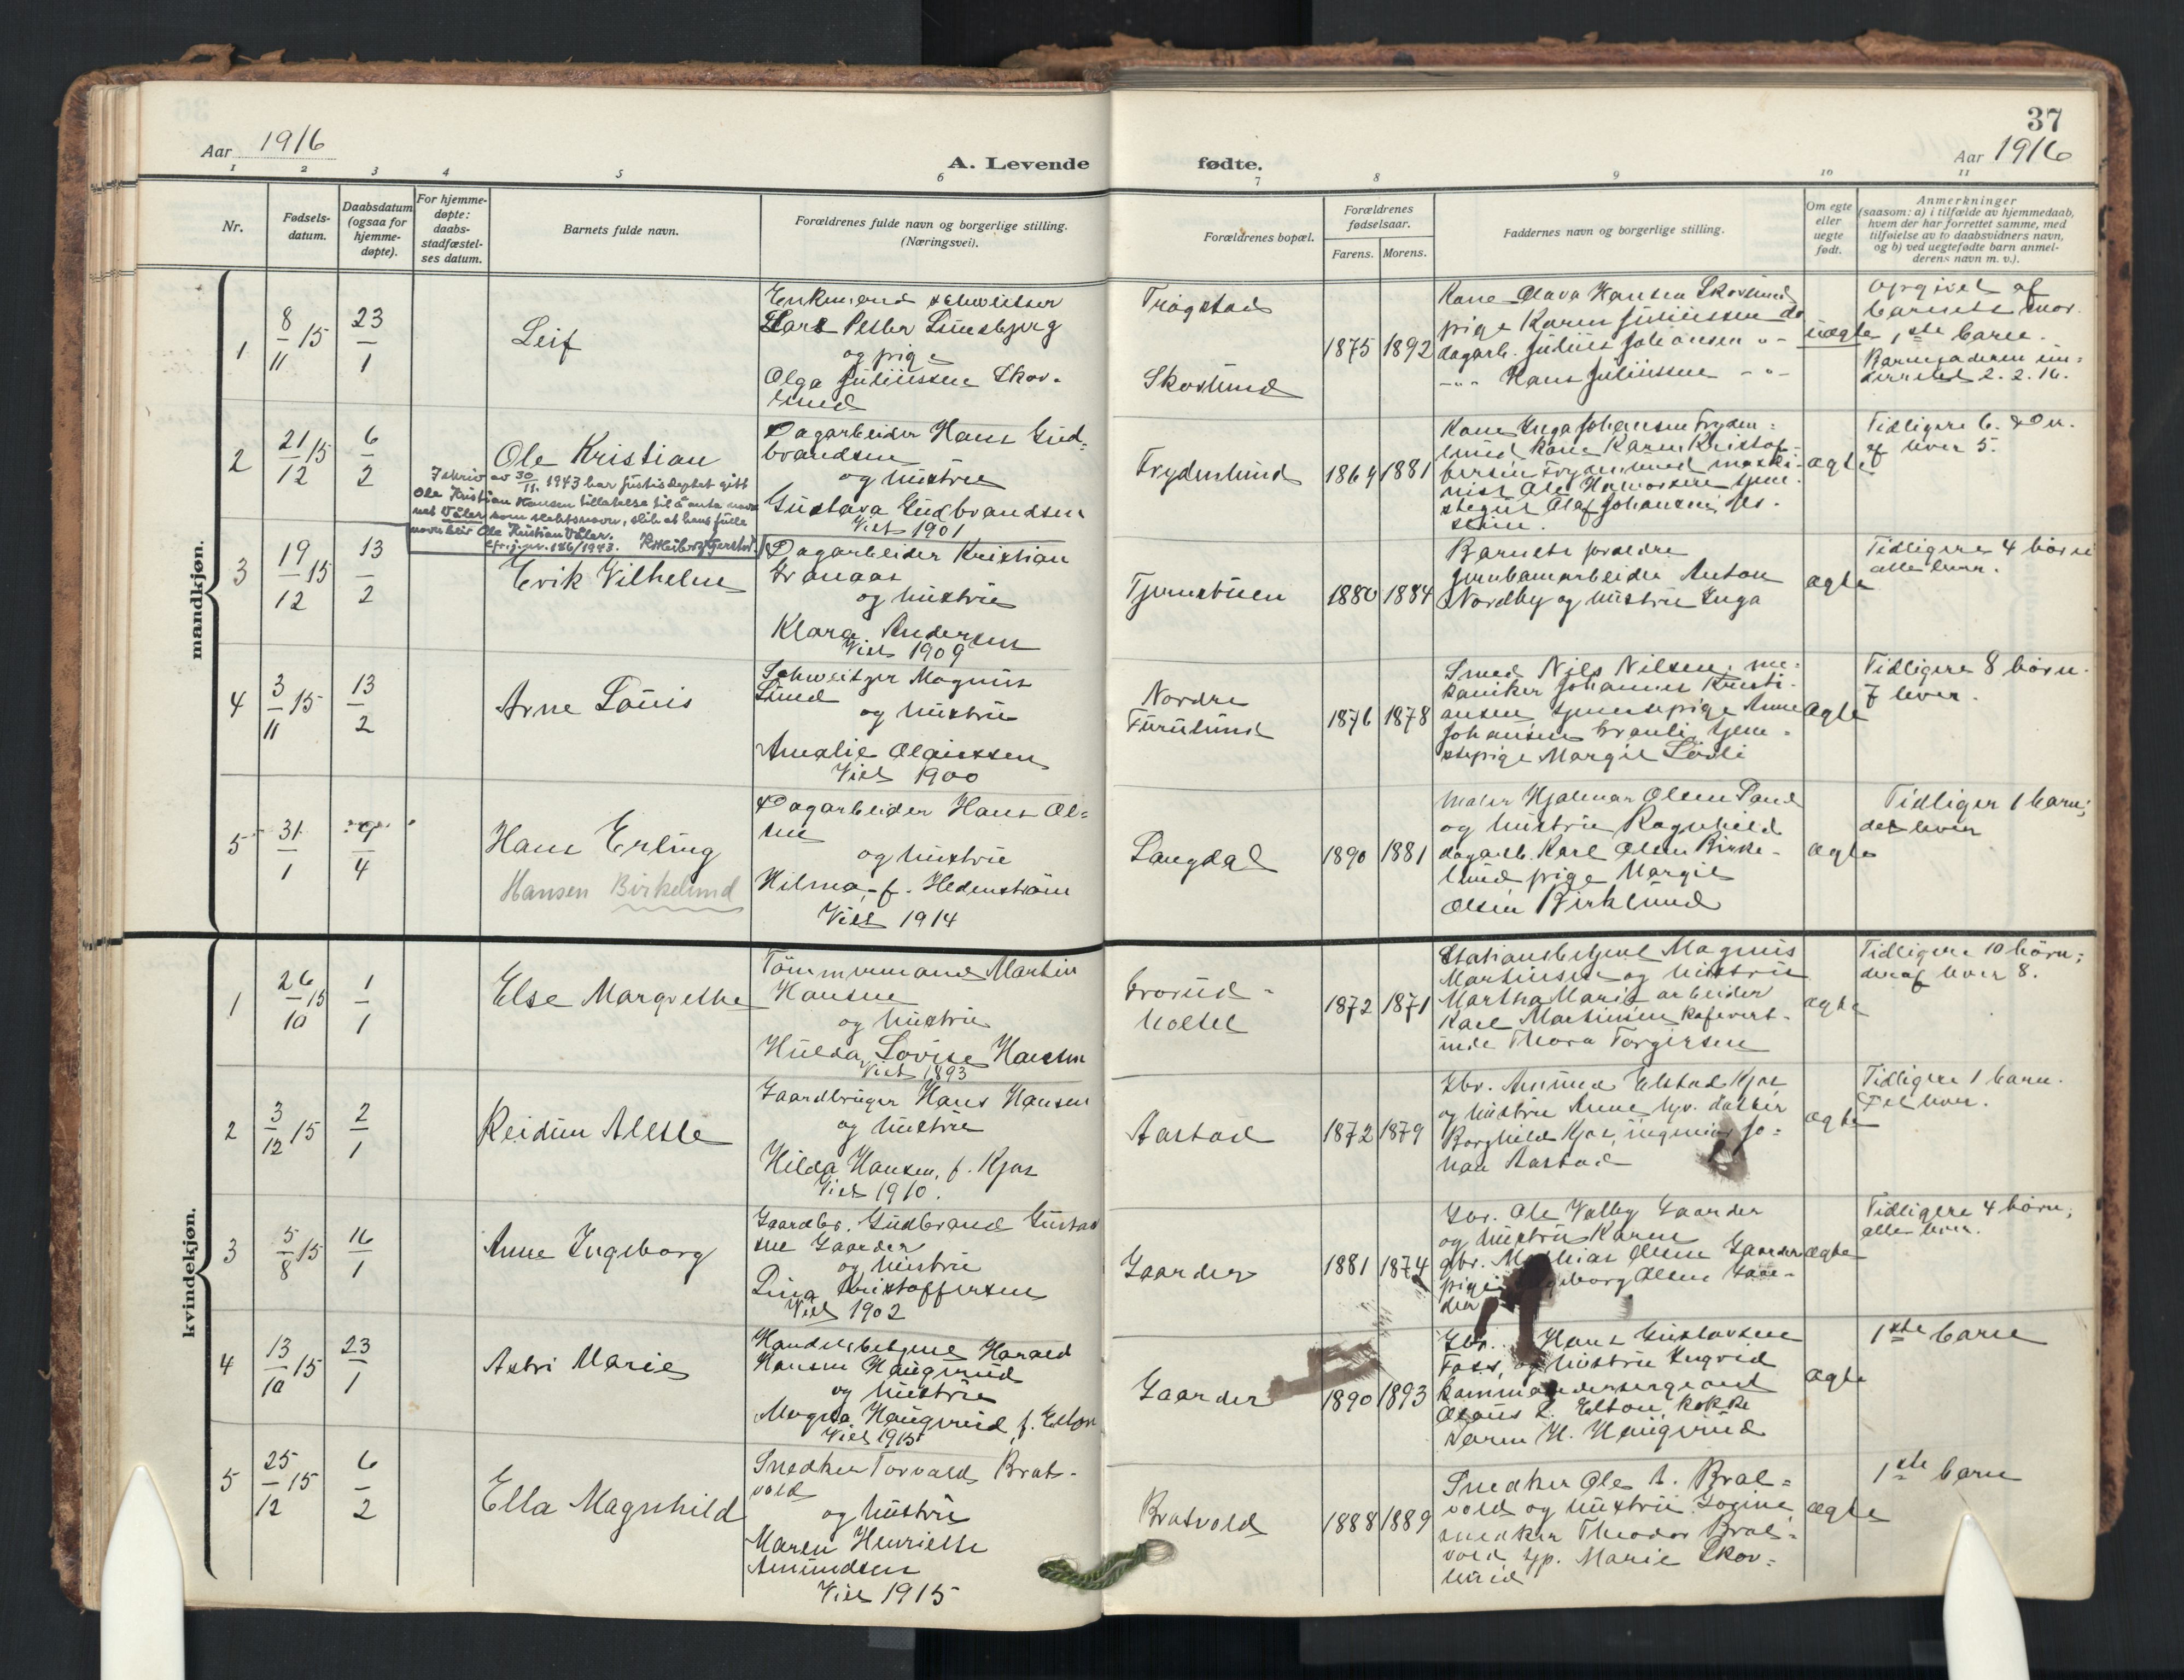 Aar 1916
A. Levende
fødte.
37
Aar 1916
1
2
3
4
5
6
7
8
9
10
11
Nr.
Fødsels-
datum.
Daabsdatum
(ogsaa for
hjemme-
døpte).
For hjemme-
døpte:
daabs-
stadfæstel-
ses datum.
Barnets fulde navn.
Forældrenes fulde navn og borgerlige stilling.
(Næringsvei).
Forældrenes bopæl.
Forældrenes
fødselsaar.
Farens. Morens.
Faddernes navn og borgerlige stilling.
Om egte
eller
uegte
født.
Anmerkninger
(saasom: a) i tilfælde av hjemmedaab,
hvem der har forrettet samme, med
tilføielse av to daabsvidners navn,
og b) ved uegtefødte barn anmel-
derens navn m. v.).
mandkjøn.
1
8/11 15
23/1
Leif
Enkemand schweitser
Lars Petter Linsbjerg
og pige
Olga Juliussen Skov-
lund
Trøgstad
Skovlund
1875 1892
Kone Olava Hansen Skovlund
pige Karen Juliussen do
dagarb. Julius Johansen
Hans Juliussen
uægte
Opgivet af
barnets mor.
1ste barn.
Barnefaderen un-
derrettet 2. 2. 16.
2
21/12 15
6/2
Ole Kristian
I skriv av 30/11. 1943 har Justisdeptet gitt
Ole Kristian Hansen tillatelse til å anta nav-
net Våler som slektsnavn, slik at hans fulle
navn blir Ole Kristian Våler.
Cfr. j.nr. 186/1943.
Dagarbeider Hans Gud-
brandsen
og hustru
Gustava Gudbrandsen
Viet 1901
Frydenlund
1864 1881
Kone Inga Johansen Fryden-
lund, kone Karen Kristof-
fersen Frydenlund, maski-
nist Ole Halvorsen, tjene-
stegut Olaf Johansen,
ægte
Tidligere 6.
af lever 5.
3
19/12 15
13/2
Erik Vilhelm
Dagarbeider Kristian
Granaas
og hustru
Klara Andersen
Viet 1909
Tjernstuen
1880 1884
Barnets forældre
jernbanearbeider Anton
Nordby og hustru Inga
ægte
Tidligere 4 børn
alle lever.
4
3/11 15
13/2
Arne Louis
Schweitzer Magnus
Lund
og hustru
Amalie Olaussen
Viet 1900
Nordre
Furulund
1876 1878
Smed Nils Nilsen, me-
kaniker Johannes Kristi-
ansen, tjenestepige Anne
Johansen Granli, tjene-
stepige Margit Lødli
ægte
Tidligere 8 børn.
7 lever.
5
31/1
9/4
Hans Erling
Hansen Birkelund
Dagarbeider Hans Ol-
sen
og hustru
Hilma, f. Hedenstrøm
Viet 1914
Langdal
1890 1881
Maler Hjalmar Olsen Sand
og hustru Ragnhild
dagarb. Karl Olsen Birke-
lund, pige Margit
Olsen Birklund
ægte
Tidliger 1 barn;
det lever
kvindekjøn.
1
26/10 15
1/1
Else Margrethe
Tømmermand Martin
Hansen
og hustru
Hulda Lovise Hansen
Viet 1893
Grorud-
holtet
1872 1871
Stationsbetjent Magnus
Martinsen og hustru
Martha Marie, arbeider
Karl Martinsen, kafevert-
inde Thora Torgersen
ægte
Tidligere 10 børn;
deraf lever 8.
2
3/12 15
2/1
Reidun Alette
Gaardbruger Hans Hansen
og hustru
Hilda Hansen, f. Kjos
Viet 1910.
Aastad
1872 1879
Gbr. Amund Elstad Kjos
og hustru Anne, hjv. datter
Borghild Kjos, ingeniør Jo-
han Aastad
ægte
Tidligere 1 barn.
Det lever.
3
5/8 15
16/1
Anne Ingeborg
Gaardbr. Gudbrand Gustav-
sen Gaarder
og hustru
Dina Kristoffersen
Viet 1902
Gaarder
1881 1874
Gbr. Ole Valby Gaarder
og hustru Karen
gbr. Mathias Olsen Gaarder
pige Ingeborg Olsen Gaar-
der
ægte
Tidligere 4 børn;
alle lever.
4
13/10 15
23/1
Astri Marie
Handelsbetjent Harald
Hansen Haugerud
og hustru
Magna Haugerud f. Elton
Viet 1915
Gaarder
1890 1893
Gbr. Hans Gustavsen
Foss og hustru Ingrid
kommandersergeant
Olaus L. Elton, kokke
Karen H. Haugerud
ægte
1ste barn
5
25/12 15
6/2
Ella Magnhild
Snedker Torvald Brat-
vold
og hustru
Maren Henriette
Amundsen
Viet 1915
Bratvold
1888 1889
Snedker Ole A. Brat-
vold og hustru Gogine,
snedker Theodor Brat-
vold, hjv. Marie Skov-
lund
ægte
1ste barn